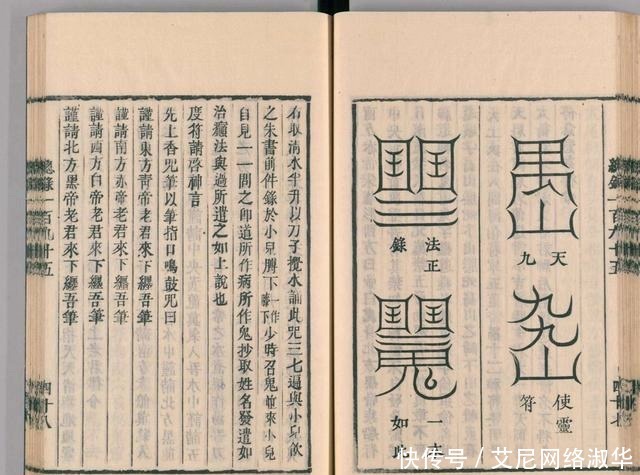 天
九
使靈
符
法正
錄
一本
如此
右取清水半升以刀子攪水誦此咒三七遍與小兒飲
之朱書前件錄於小兒膊下一作膝下少時召鬼並來小兒
自見一一問之卽道所作病所作鬼抄取姓名發遣如
治癲法與過所遣之如上說也
度符請啓神言
先上香咒筆以筆指日鳴鼓咒曰
謹請東方靑帝老君來下纏吾筆
謹請南方赤帝老君來下纏吾筆
謹請西方白帝老君來下纏吾筆
謹請北方黑帝老君來下纏吾筆
總錄一百九十五
四十八
快传号/艾尼网络淑华